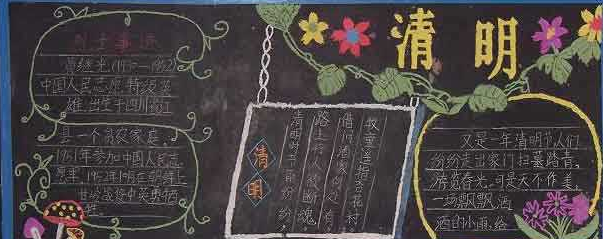 清明
烈士事迹
黄继光(1931—1952)
中国人民志愿军特级英
雄,出生于四川省
县一个贫农家庭。
1951年参加中国人民志
愿军,1952年10月在朝鲜上
甘岭战役中英勇牺
牲。
清明
清明时节雨纷纷,
路上行人欲断魂。
借问酒家何处有,
牧童遥指杏花村。
又是一年清明节,人们
纷纷走出家门扫墓踏青,
游览春光。可是天不作美,
一场飘飘洒
洒的小雨,给